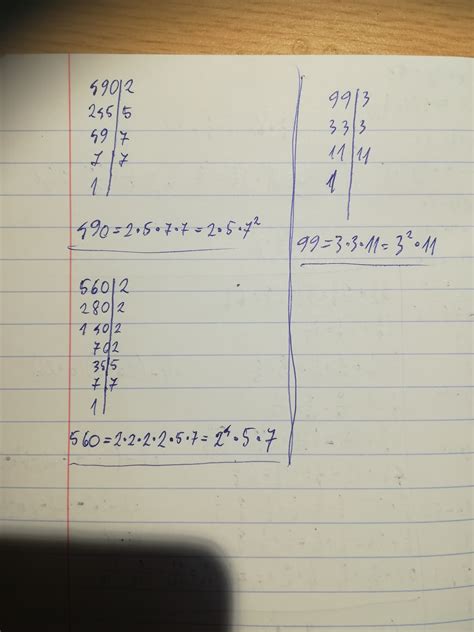 490|2
245|5
49|7
7|7
1|
490=2·5·7·7=2·5·7²
560|2
280|2
140|2
70|2
35|5
7|7
1|
560=2·2·2·2·5·7=2⁴·5·7
99|3
33|3
11|11
1|
99=3·3·11=3²·11